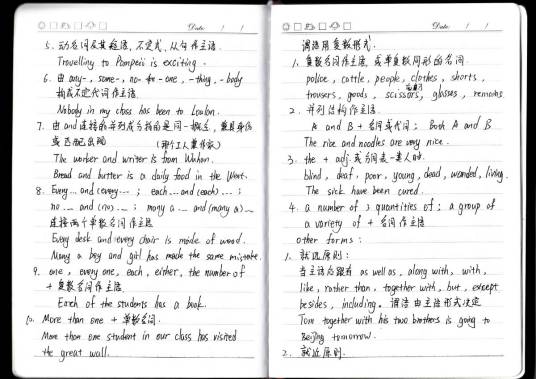 Date: / /
5. 动名词及其短语、不定式、从句作主语.
Travelling to Pompeii is exciting.
6. 由 any-, some-, no- + -one, -thing, -body
构成不定代词作主语.
Nobody in my class has been to London.
7. 由 and 连接的并列成分指的是同一概念, 兼具身份
或匹配出现 (那个工人兼作家)
The worker and writer is from Wuhan.
Bread and butter is a daily food in the West.
8. Every... and (every... ; each... and (each)... ;
no ... and (no) ... ; many a ... and (many a) ...
连接两个单数名词作主语
Every desk and every chair is made of wood.
Many a boy and girl has made the same mistake.
9. one, every one, each, either, the number of
+ 复数名词作主语.
Each of the students has a book.
10. More than one + 单数名词.
More than one student in our class has visited
the great wall.
Date: / /
谓语用复数形式.
1. 复数名词作主语, 或单复数同形的名词.
police, cattle, people, clothes, shorts,
trousers, goods, scissors, glasses, remains.
2. 并列结构作主语.
A and B + 名词或代词; Both A and B
The rice and noodles are very nice.
3. the + adj. 或分词表一类人时.
blind, deaf, poor, young, dead, wounded, living.
The sick have been cured.
4. a number of; quantities of; a group of
a variety of + 名词作主语
other forms:
1. 就远原则:
当主语后跟有 as well as, along with, with,
like, rather than, together with, but, except
besides, including. 谓语由主语形式决定
Tom together with his two brothers is going to
Beijing tomorrow.
2. 就近原则.